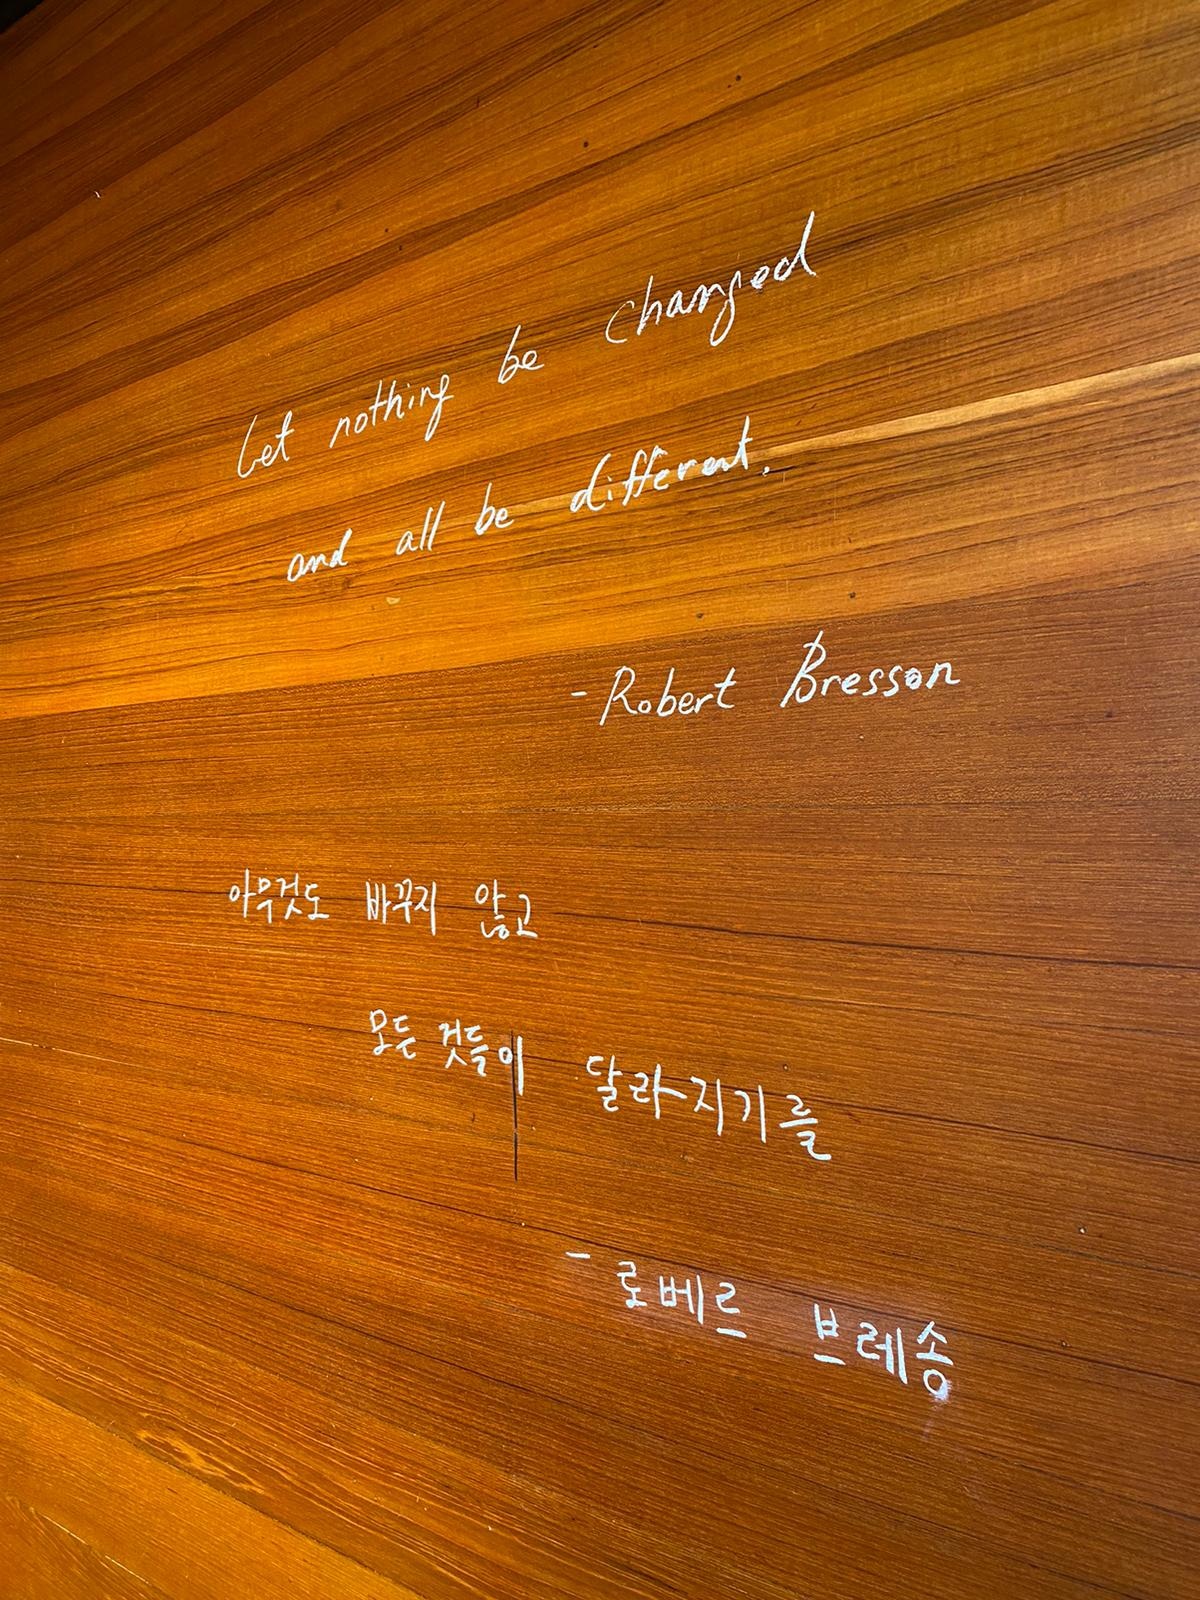 Let nothing be changed
and all be different.
- Robert Bresson
아무것도 바꾸지 않고
모든 것들이 달라지기를
- 로베르 브레송